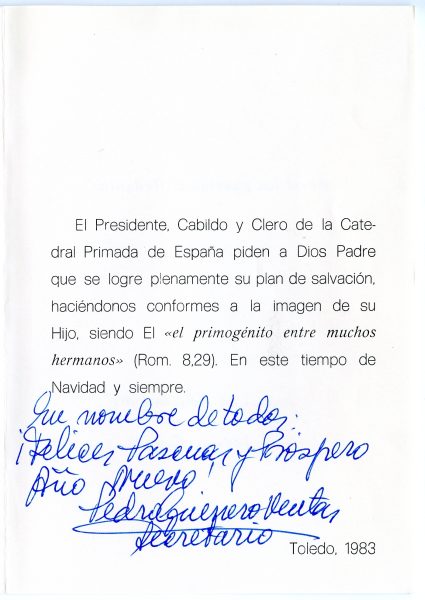 El Presidente, Cabildo y Clero de la Cate-
dral Primada de España piden a Dios Padre
que se logre plenamente su plan de salvación,
haciéndonos conformes a la imagen de su
Hijo, siendo El «el primogénito entre muchos
hermanos» (Rom. 8,29). En este tiempo de
Navidad y siempre.
En nombre de todos:
¡Felices Pascuas y Próspero
Año Nuevo!
Secretario
Toledo, 1983